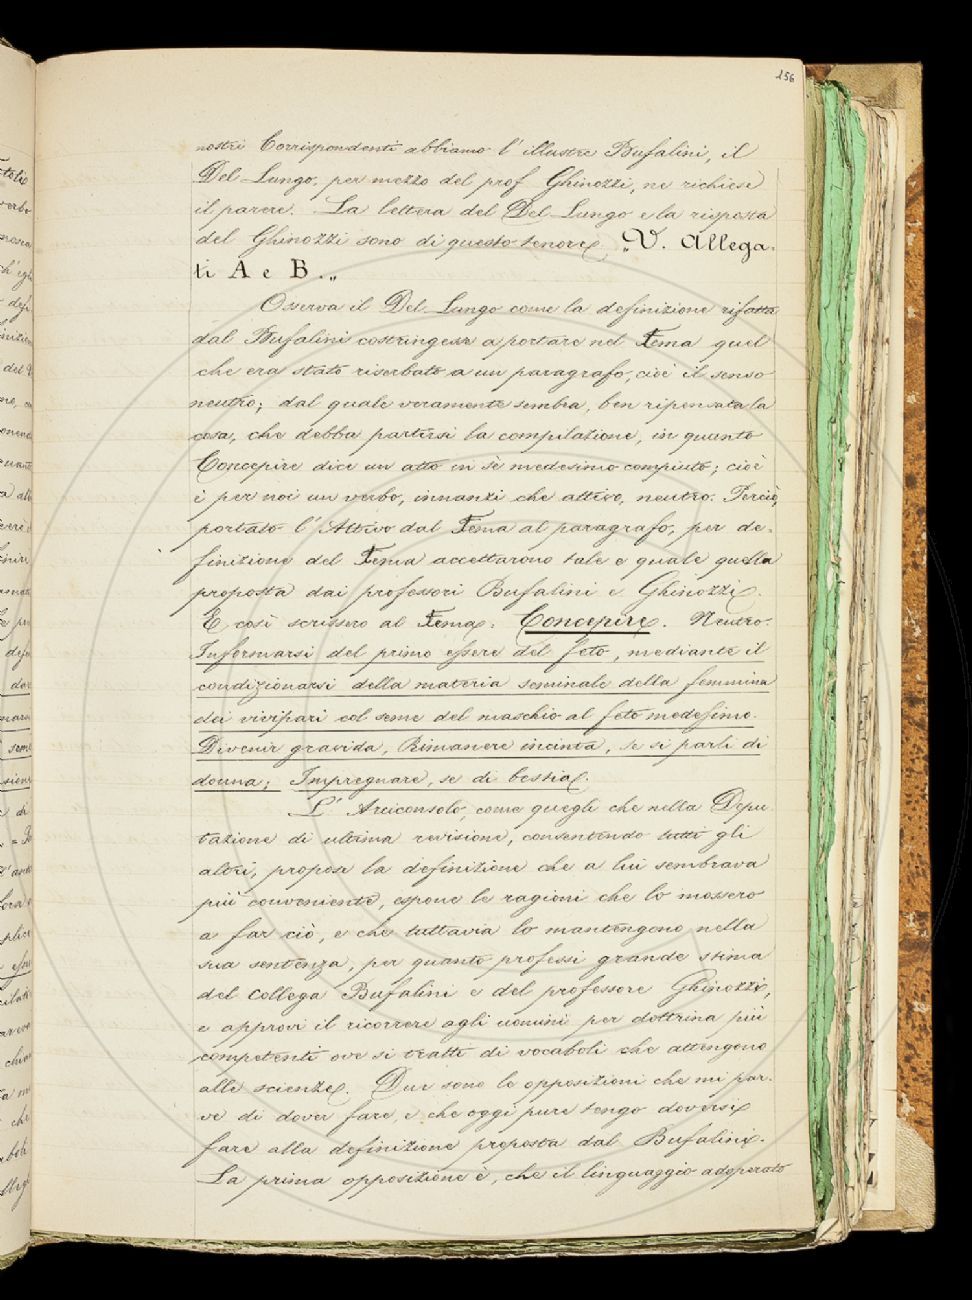 156
nostri Corrispondenti abbiamo l'illustre Bufalini, il
Del-Lungo, per mezzo del prof. Ghinozzi, ne richiese
il parere. La lettera del Del-Lungo e la risposta
del Ghinozzi sono di questo tenore. „V. Allega-
ti A e B.„
Osserva il Del-Lungo come la definizione rifatta
dal Bufalini costringesse a portare nel Tema quel
che era stato riserbato a un paragrafo, cioè il senso
neutro; dal quale veramente sembra, ben ripensata la
cosa, che debba partirsi la compilazione, in quanto
Concepire dice un atto in sè medesimo compiuto; cioè
è per noi un verbo, innanzi che attivo, neutro. Perciò,
portato l'Attivo dal Tema al paragrafo, per de-
finizione del Tema accettarono tale e quale quella
proposta dai professori Bufalini e Ghinozzi.
E così scrissero al Tema: Concepire. Neutro.
Informarsi del primo essere del feto, mediante il
condizionarsi della materia seminale della femmina
dei vivipari col seme del maschio al feto medesimo.
Divenir gravida, Rimanere incinta, se si parli di
donna; Impregnare, se di bestia.
L'Arciconsolo, come quegli che nella Depu-
tazione di ultima revisione, consentendo tutti gli
altri, propose la definizione che a lui sembrava
più conveniente, espone le ragioni che lo mossero
a far ciò, e che tuttavia lo mantengono nella
sua sentenza, per quanto professi grande stima
del collega Bufalini e del professore Ghinozzi,
e approvi il ricorrere agli uomini per dottrina più
competenti ove si tratti di vocaboli che attengono
alle scienze. Due sono le opposizioni che mi par-
ve di dover fare, e che oggi pure tengo doversi
fare alla definizione proposta dal Bufalini.
La prima opposizione è, che il linguaggio adoperato